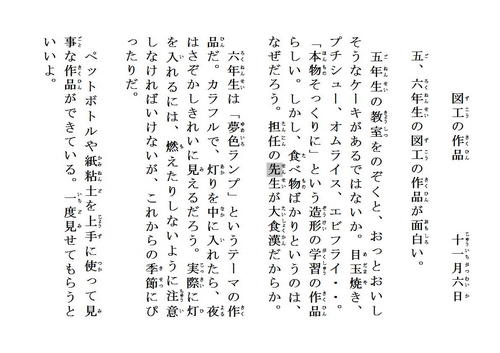 図工の作品
十一月六日
五、六年生の図工の作品が面白い。
五年生の教室をのぞくと、おっとおいし
そうなケーキがあるではないか。目玉焼き、
プチシュー、オムライス、エビフライ・・。
「本物そっくりに」という造形の学習の作品
らしい。しかし、食べ物ばかりというのは、
なぜだろう。担任の先生が大食漢だからか。
六年生は「夢色ランプ」というテーマの作
品だ。カラフルで、灯りを中に入れたら、夜
はさぞかしきれいに見えるだろう。実際に灯
を入れるには、燃えたりしないように注意
しなければいけないが、これからの季節にぴ
ったりだ。
ペットボトルや紙粘土を上手に使って見
事な作品ができている。一度見せてもらうと
いいよ。